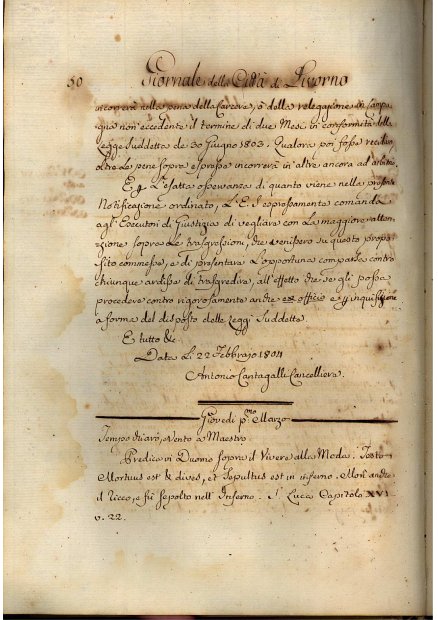 50 Giornale della Città di Livorno
incorrerà nella pena della Carcere, o della relegazione in Campa-
gna non eccedente il termine di due Mesi in conformità della
Legge Suddetta de 30 Giugno 1803. Qualora poi fosse recidivo
oltre le pene sopra espresse incorrerà in altre ancora ad arbitrio.
E p L'esatta osservanza di quanto viene nella presente
Notificazione ordinato, L'E. S. espressamente comanda
agl'Esecutori di Giustizia di vegliare con La maggiore atten-
zione sopra Le trasgressioni, che venissero su questo propo-
sito commesse, e di presentare L'opportune comparse contro
chiunque ardisse di trasgredire, all'effetto che se gli possa
procedere contro rigorosamente anche ex officio e p inquisizione
a forma del disposto delle Leggi Suddette.
E tutto &c.
Data Li 22 Febbrajo 1804
Antonio Cantagalli Cancelliere.
Giovedì p.mo Marzo
Tempo chiaro, vento a Maestro.
Predica in Duomo sopra il Vivere alla Moda. Testo
Mortuus est & dives, et Sepultus est in inferno. Morì anche
il Ricco, e fu sepolto nell'Inferno. S. Luca Capitolo XVI
v. 22.